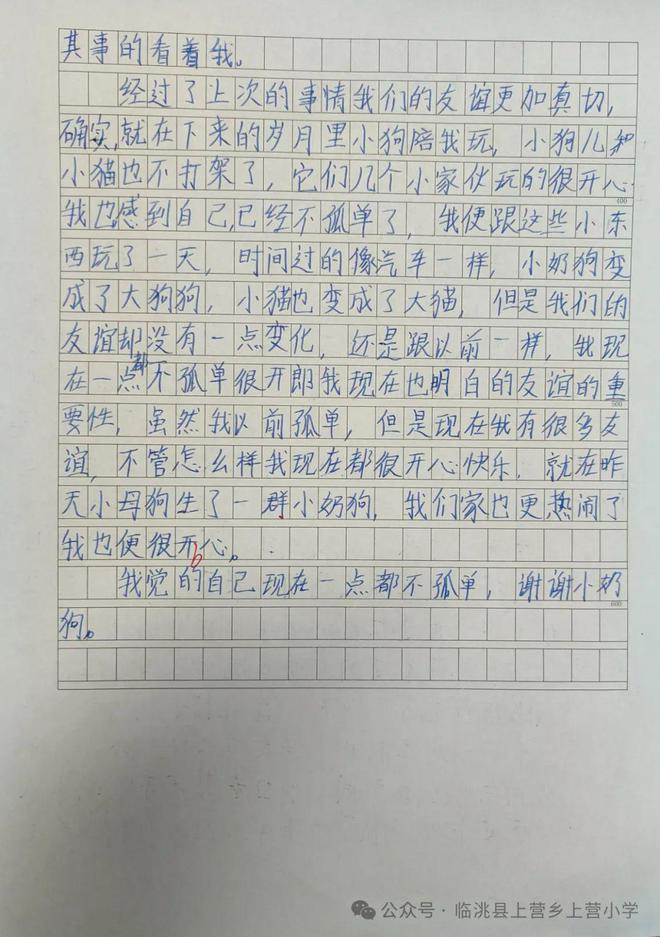 其事的看着我。
经过了上次的事情我们的友谊更加真切,
确实,就在下来的岁月里小狗陪我玩,小狗儿和
小猫也不打架了,它们几个小家伙玩的很开心
400
我也感到自己,已经不孤单了,我便跟这些小东
西玩了一天,时间过的像汽车一样,小奶狗变
成了大狗狗,小猫也变成了大猫,但是我们的
友谊却没有一点变化,还是跟以前一样,我现
在一点都不孤单很开即我现在也明白的友谊的重
500
要性,虽然我以前孤单,但是现在我有很多友
谊,不管怎么样我现在都很开心快乐,就在昨
天小母狗生了一群小奶狗,我们家也更热闹了
我也便很开心。
我觉的自己现在一点都不孤单,谢谢小奶
600
狗。
公众号·临洮县上营乡上营小学